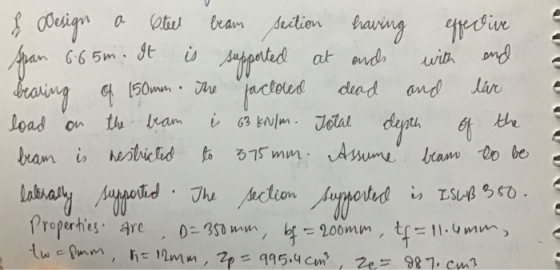 & Design a Steel beam section having effective
span 6.65m. It is supported at ends with end
bearing of 150mm. The factored dead and live
load on the beam is 63 kN/m. Total depth of the
beam is restricted to 375 mm. Assume beam to be
laterally supported. The section supported is ISWB 350.
Properties. are, D = 350 mm, bf = 200mm, tf = 11.4mm,
tw = 8mm, R = 12mm, Zp = 995.4 cm³, Ze = 887. cm3